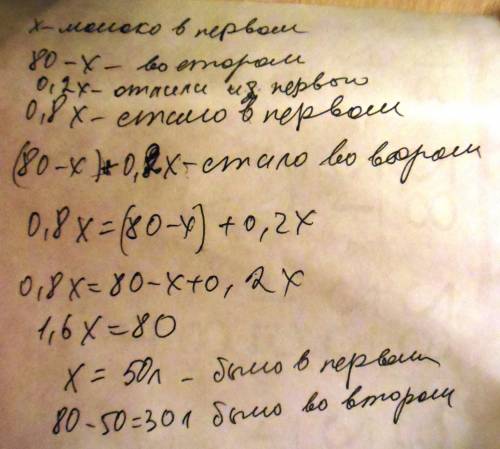 x - молоко в первом
80-x - во втором
0,2x - отлили из первого
0,8x - стало в первом
(80-x)+0,2x - стало во втором
0,8x=(80-x)+0,2x
0,8x=80-x+0,2x
1,6x=80
x = 50л - было в первом
80-50=30л было во втором